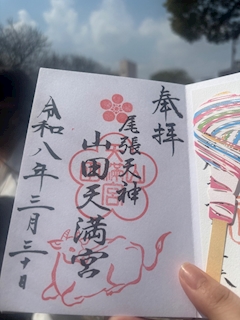 奉拝
尾張天神
山田天満宮
令和八年三月三十日